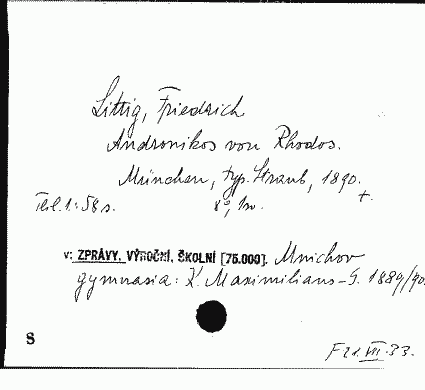 Littig, Friedrich
Andronikos von Rhodos.
München, typ. Straub, 1890. +
Teil. 1.: 58 s. 8°, 1 sv.
v: ZPRÁVY, VÝROČNÍ, ŠKOLNÍ [75.000]. Mnichov
gymnasia: K. Maximilians-G. 1889/90.
S
F 21. VII. 33.